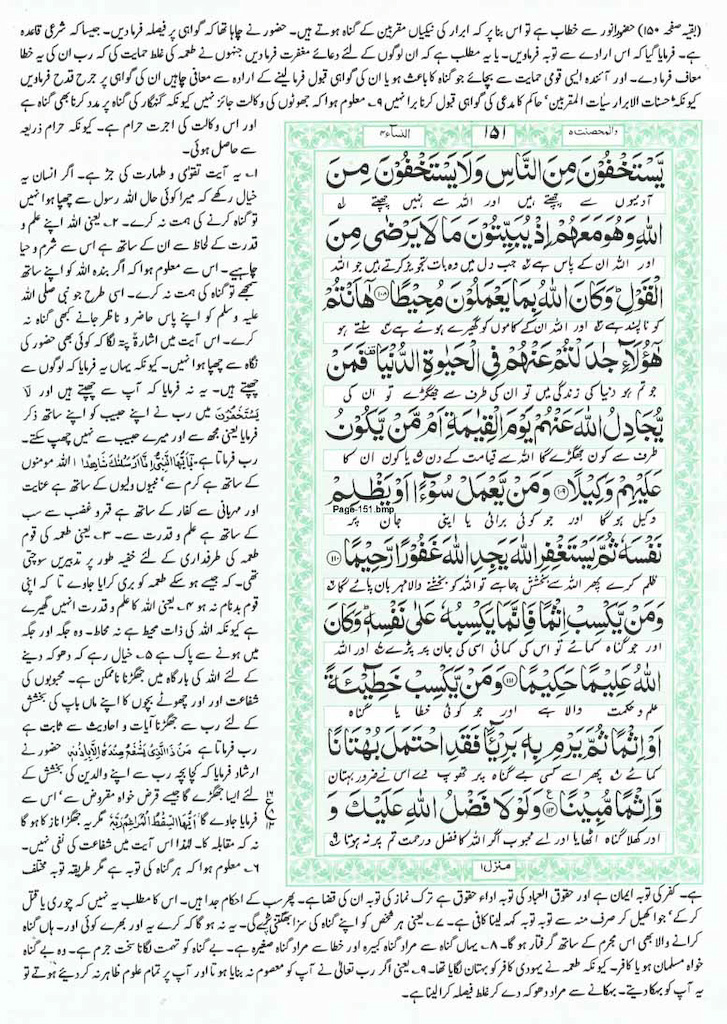 (بقیہ صفحہ ۱۵۰) حضور انور سے خطاب ہے تو اس بنا پر کہ ابرار کی نیکیاں مقربین کے گناہ ہوتے ہیں۔ حضور نے چاہا تھا کہ گواہی پر فیصلہ فرما دیں۔ جیسا کہ شرعی قاعدہ
ہے۔ فرمایا گیا کہ اس ارادے سے توبہ فرماویں۔ یا یہ مطلب ہے کہ ان لوگوں کے لئے دعائے مغفرت فرما دیں جنہوں نے طعمہ کی غلط حمایت کی کہ رب ان کی یہ خطا
معاف فرما دے۔ اور آئندہ ایسی قومی حمایت سے بچائے جو گناہ کا باعث ہو یا ان کی گواہی قبول فرما لینے کے ارادہ سے معافی چاہیں ان کی گواہی پر جرح قدح فرماویں
کیونکہ حسنات الابرار سیات المقربین' حاکم کا مدعی کی گواہی قبول کرنا برا نہیں ۹۔ معلوم ہوا کہ جھوٹوں کی وکالت جائز نہیں کیونکہ گنہگار کی گناہ پر مدد کرنا بھی گناہ ہے
اور اس وکالت کی اجرت حرام ہے۔ کیونکہ حرام ذریعہ
سے حاصل ہوئی۔
۱۔ یہ آیت تقویٰ و طہارت کی جڑ ہے۔ اگر انسان یہ
خیال رکھے کہ میرا کوئی حال اللہ رسول سے چھپا ہوا نہیں
تو گناہ کرنے کی ہمت نہ کرے۔ ۲۔ یعنی اللہ اپنے علم و
قدرت کے لحاظ سے ان کے ساتھ ہے اس سے شرم و حیا
چاہیے۔ اس سے معلوم ہوا کہ اگر بندہ اللہ کو اپنے ساتھ
سمجھے تو گناہ کی ہمت نہ کرے۔ اسی طرح جو نبی صلی اللہ
علیہ وسلم کو اپنے پاس حاضر و ناظر جانے کبھی گناہ نہ
کرے۔ اس آیت میں اشارۃً پتہ لگا کہ کوئی بھی حضور کی
نگاہ سے چھپا ہوا نہیں۔ کیونکہ یہاں یہ فرمایا کہ لوگوں سے
چھپتے ہیں۔ یہ نہ فرمایا کہ آپ سے چھپتے ہیں اور لَا
یَسْتَخْفُوْنَ میں رب نے اپنے حبیب کو اپنے ساتھ ذکر
فرمایا یعنی مجھ سے اور میرے حبیب سے نہیں چھپ سکتے۔
رب فرماتا ہے۔ یٰۤاَیُّهَا النَّبِیُّ اِنَّاۤ اَرْسَلْنٰكَ شَاهِدًا ۱ اللہ مومنوں
کے ساتھ ہے کرم سے' نبیوں ولیوں کے ساتھ ہے عنایت
اور مہربانی سے کفار کے ساتھ ہے قہر و غضب سے سب
کے ساتھ ہے علم و قدرت سے۔ ۳۔ یعنی طعمہ کی قوم
طعمہ کی طرفداری کے لئے خفیہ طور پر تدبیریں سوچتی
تھی۔ کہ جیسے ہو سکے طعمہ کو بری کرایا جاوے تا کہ اپنی
قوم بدنام نہ ہو ۴۔ یعنی اللہ کا علم و قدرت انہیں گھیرے
ہے کیونکہ اللہ کی ذات محیط ہے نہ محاط۔ وہ جگہ اور جگہ
میں ہونے سے پاک ہے ۵۔ خیال رہے کہ دھوکہ دینے
کے لئے اللہ کی بارگاہ میں جھگڑنا ناممکن ہے۔ محبوبوں کی
شفاعت اور اور چھوٹے بچوں کا اپنے ماں باپ کی بخشش
کے لئے رب سے جھگڑنا آیات و احادیث سے ثابت ہے
رب فرماتا ہے مَنْ ذَا الَّذِیْ یَشْفَعُ عِنْدَهٗۤ اِلَّا بِاِذْنِهٖ حضور نے
ارشاد فرمایا کہ کچا بچہ رب سے اپنے والدین کی بخشش کے
لئے ایسا جھگڑے گا جیسے قرض خواہ مقروض سے' اس سے
فرمایا جاوے گا اَیُّهَا السِّقْطُ الْمُرَاغِمُ رَبَّهٗ مگر یہ جھگڑا ناز کا ہو گا
نہ کہ مقابلہ کا۔ لہٰذا اس آیت میں شفاعت کی نفی نہیں۔
۶۔ معلوم ہوا کہ ہر گناہ کی توبہ ہے مگر طریقہ توبہ مختلف
والمحصنٰت ۵
۱۵۱
النساء ۴
یَّسْتَخْفُوْنَ مِنَ النَّاسِ وَلَا یَسْتَخْفُوْنَ مِنَ
آدمیوں سے چھپتے ہیں اور اللہ سے نہیں چھپتے
اللّٰهِ وَهُوَ مَعَهُمْ اِذْ یُبَیِّتُوْنَ مَا لَا یَرْضٰى مِنَ
اور اللہ ان کے پاس ہے جب دل میں وہ بات تجویز کرتے ہیں جو اللہ
الْقَوْلِ وَكَانَ اللّٰهُ بِمَا یَعْمَلُوْنَ مُحِیْطًا ۱۰۸ هٰۤاَنْتُمْ
کو ناپسند ہے اور اللہ ان کے کاموں کو گھیرے ہوئے ہے سنتے ہو
هٰۤؤُلَآءِ جٰدَلْتُمْ عَنْهُمْ فِی الْحَیٰوةِ الدُّنْیَا فَمَنْ
جو تم ہو دنیا کی زندگی میں تو ان کی طرف سے جھگڑے تو ان کی
یُّجَادِلُ اللّٰهَ عَنْهُمْ یَوْمَ الْقِیٰمَةِ اَمْ مَّنْ یَّكُوْنُ
طرف سے کون جھگڑے گا اللہ سے قیامت کے دن یا کون ان کا
عَلَیْهِمْ وَكِیْلًا ۱۰۹ وَمَنْ یَّعْمَلْ سُوْٓءًا اَوْ یَظْلِمْ
وکیل ہو گا اور جو کوئی برائی یا اپنی جان پر
Page-151.bmp
نَفْسَهٗ ثُمَّ یَسْتَغْفِرِ اللّٰهَ یَجِدِ اللّٰهَ غَفُوْرًا رَّحِیْمًا ۱۱۰
ظلم کرے پھر اللہ سے بخشش چاہے تو اللہ کو بخشنے والا مہربان پائے گا
وَمَنْ یَّكْسِبْ اِثْمًا فَاِنَّمَا یَكْسِبُهٗ عَلٰى نَفْسِهٖ وَكَانَ
اور جو گناہ کمائے تو اس کی کمائی اسی کی جان پر پڑے اور اللہ
اللّٰهُ عَلِیْمًا حَكِیْمًا ۱۱۱ وَمَنْ یَّكْسِبْ خَطِیْٓـَٔةً
علم و حکمت والا ہے اور جو کوئی خطا یا گناہ
اَوْ اِثْمًا ثُمَّ یَرْمِ بِهٖ بَرِیْٓــًٔا فَقَدِ احْتَمَلَ بُهْتَانًا
کمائے پھر اسے کسی بے گناہ پر تھوپ دے اس نے ضرور بہتان
وَّاِثْمًا مُّبِیْنًا ۱۱۲ وَلَوْلَا فَضْلُ اللّٰهِ عَلَیْكَ وَ
اور کھلا گناہ اٹھایا اور اے محبوب اگر اللہ کا فضل و رحمت تم پر نہ ہوتا
منزل ۱
ہے۔ کفر کی توبہ ایمان ہے اور حقوق العباد کی توبہ اداء حقوق ہے ترک نماز کی توبہ ان کی قضا ہے۔ پھر سب کے احکام جدا ہیں۔ اس کا مطلب یہ نہیں کہ چوری یا قتل
کر کے' جوا کھیل کر صرف منہ سے توبہ توبہ کہہ لینا کافی ہے۔ ۷۔ یعنی ہر شخص کو اپنے گناہ کی سزا بھگتنی پڑے گی۔ یہ نہ ہو گا کہ کرے یہ اور بھرے کوئی اور۔ ہاں گناہ
کرانے والا بھی اس مجرم کے ساتھ گرفتار ہو گا۔ ۸۔ یہاں گناہ سے مراد گناہ کبیرہ اور خطا سے مراد گناہ صغیرہ ہے۔ بے گناہ کو تہمت لگانا سخت جرم ہے۔ وہ بے گناہ
خواہ مسلمان ہو یا کافر۔ کیونکہ طعمہ نے یہودی کافر کو بہتان لگایا تھا۔ ۹۔ یعنی اگر رب تعالیٰ نے آپ کو معصوم نہ بنایا ہوتا اور آپ پر تمام علوم ظاہر نہ کر دیئے ہوتے تو
یہ آپ کو بہکا دیتے۔ بہکانے سے مراد دھوکہ دے کر غلط فیصلہ کرا لینا ہے۔